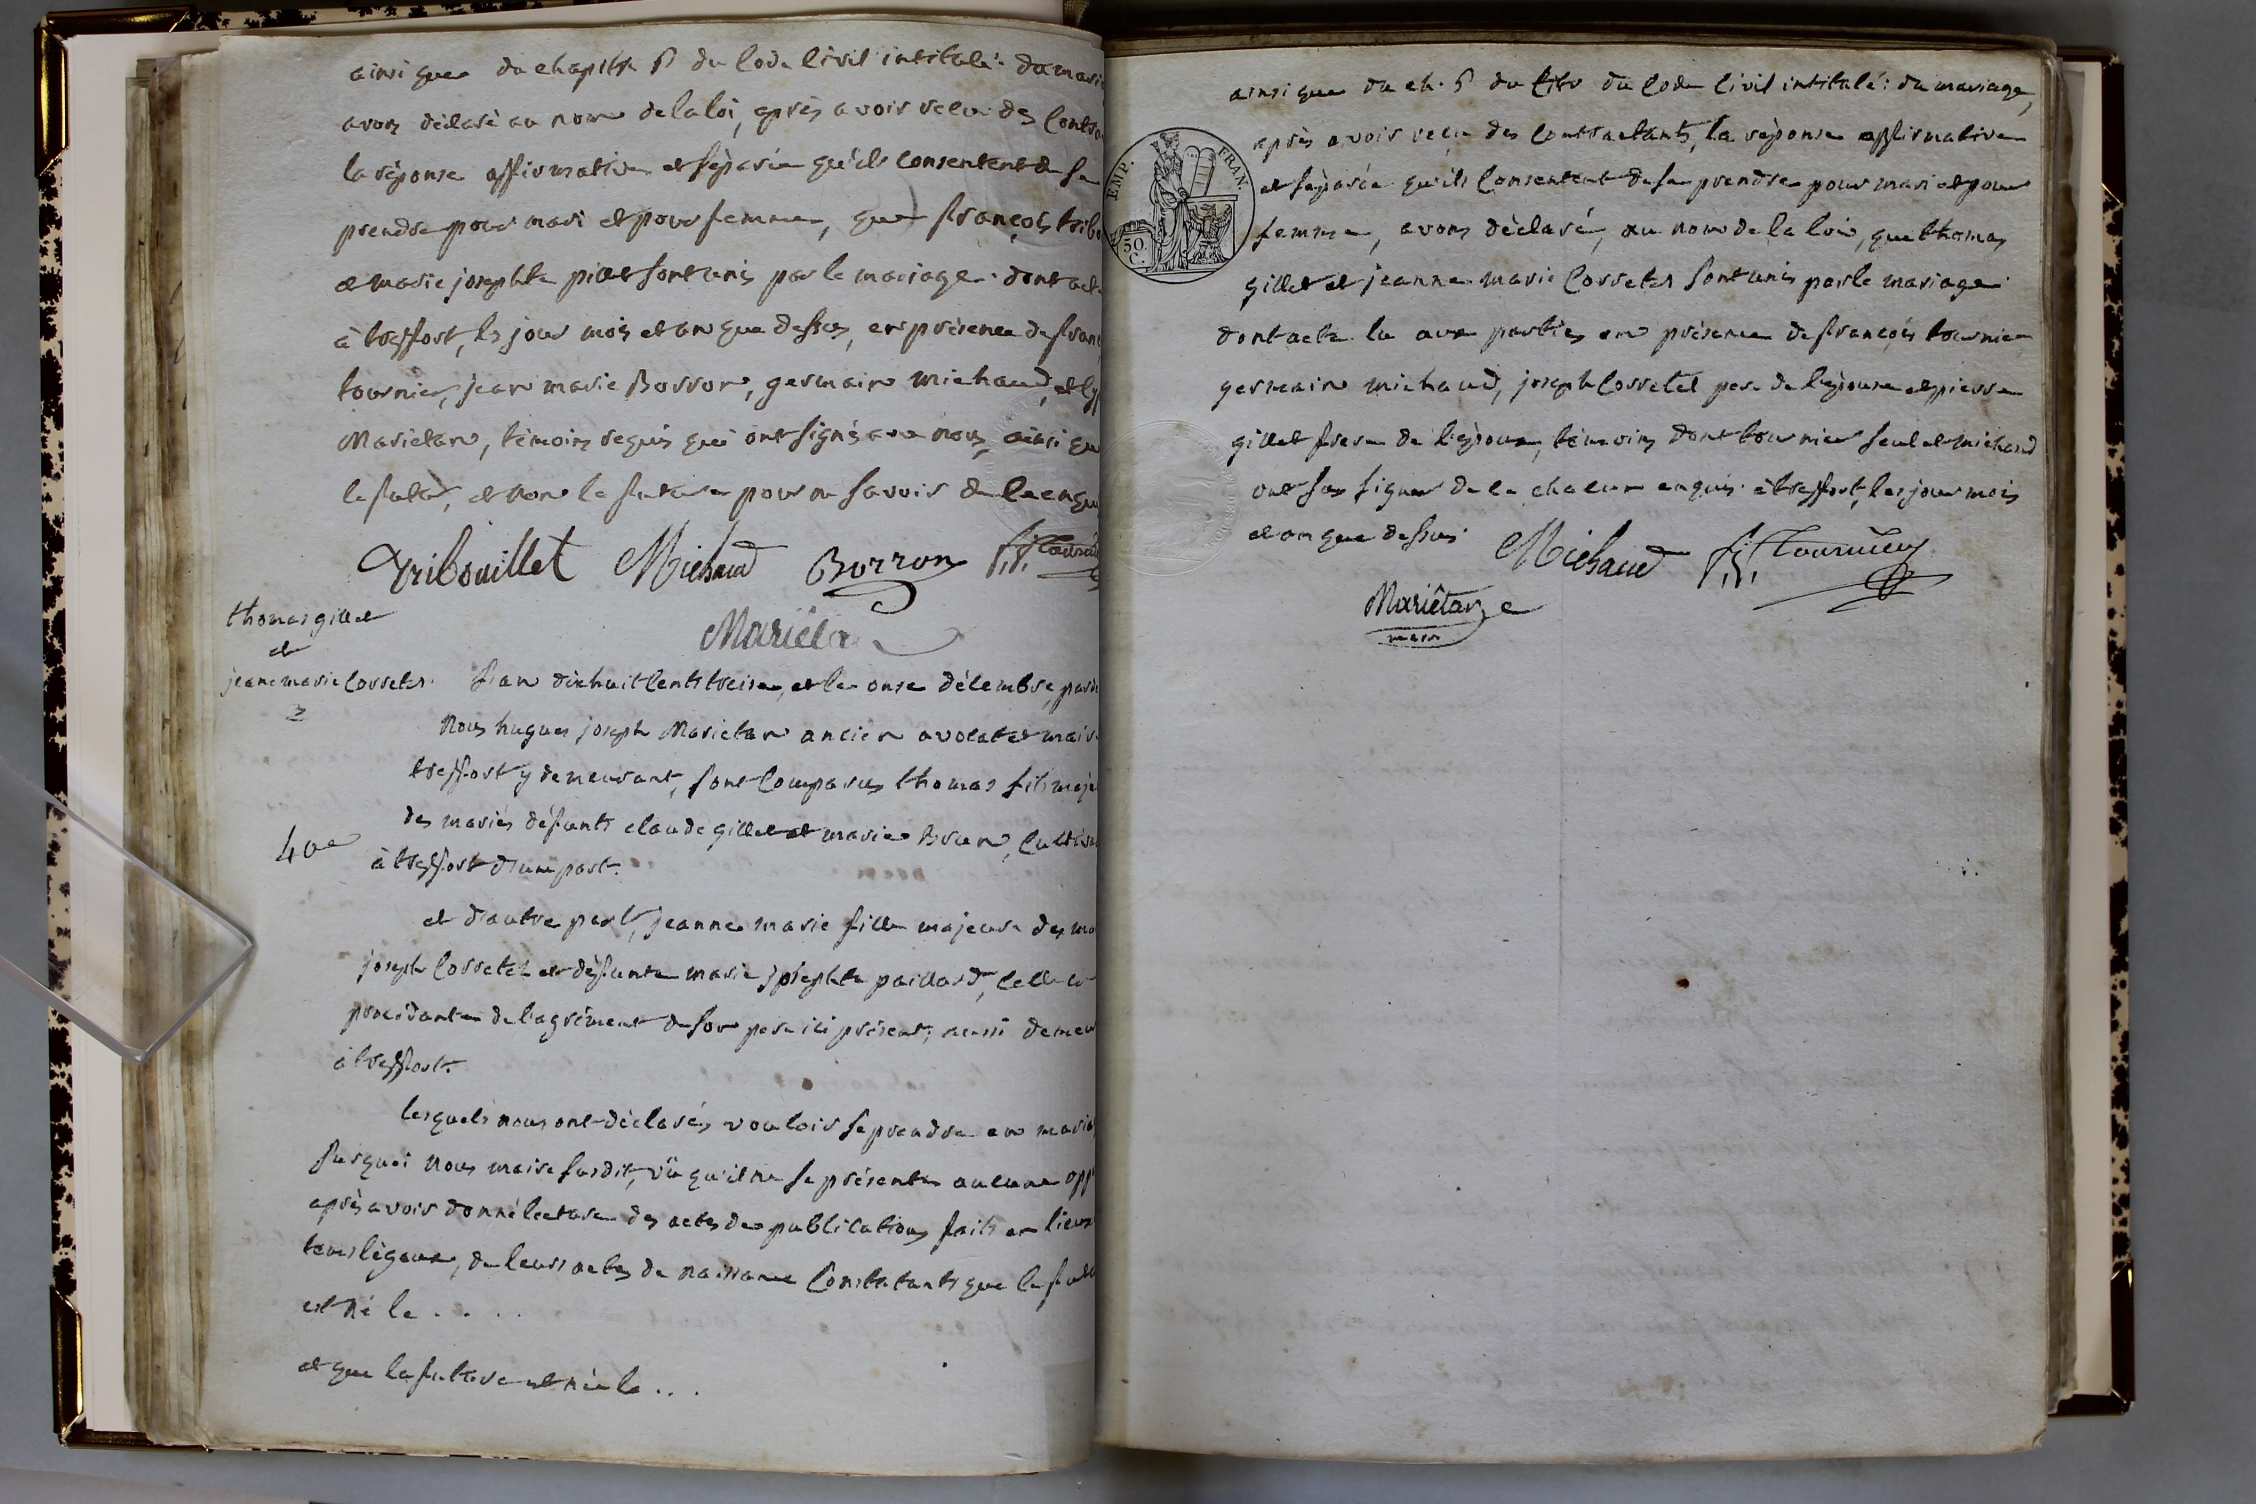 ainsi que du chapitre 6 du Code Civil intitulé: du mari
avons déclaré au nom de la loi, après avoir recu des Contra
la réponse affirmative et séparée qu'ils consentent de se
prendre pour mari et pour femme, que françois tribo
et marie josephte pillet sont unis par le mariage. dont act
à treffort, les jour mois et an que dessus, en présence de fran
tournier, jean marie Borron, germain michaud, et
Marietan, témoins requis qui ont signés avec nous, ainsi que
le futur, et non la future pour ne savoir de ce enqu
Tribouillet Michaud Borron f. f. Tourni
Mariéta
thomas gillet
et
jeane marie Corretel.
L'an dix huit Cents treise, et le onse décembre, pard
Nous hugues joseph Marietan ancien avocat et mair
treffort y demeurant, sont Comparus thomas fils maje
des mariés défunts claude gillet et marie Brun, Cultiva
40e
à treffort d'une part.
et d'autre part, jeanne marie fille majeure des ma
joseph Corretel et défunte marie josephte paillard, Celle ci
procédante de l'agrément de son pere ici présent, aussi demeu
à treffort.
lesquels nous ont déclarés vouloir se prendre en maria
sur quoi nous maire susdit, vû qu'il ne se présente aucune opp
après avoir donné lecture des actes de publications faits en lieux
tems légaux, de leurs actes de naissance Constatants que le futu
est né le . . . .
et que la future est née le . . .
ainsi que du ch. 6 du titre du Code Civil intitulé: du mariage,
après avoir reçu des Contractants, la réponse affirmative
et séparée qu'ils Consentent de se prendre pour mari et pour
femme, avons déclaré, au nom de la loi, que thomas
gillet et jeanne marie Corretel sont unis par le mariage.
dont acte lu aux parties en présence de françois tournier
germain michaud, joseph Corretel pere de l'epouse et pierre
gillet frere de l'epoux, témoins dont tournier seul et michaud
ont su signer de ce chacun enquis. à treffort, les jour mois
et an que dessus.
Michaud f. f. Tournier
Mariétan
maire
EMP. FRAN.
50.
C.